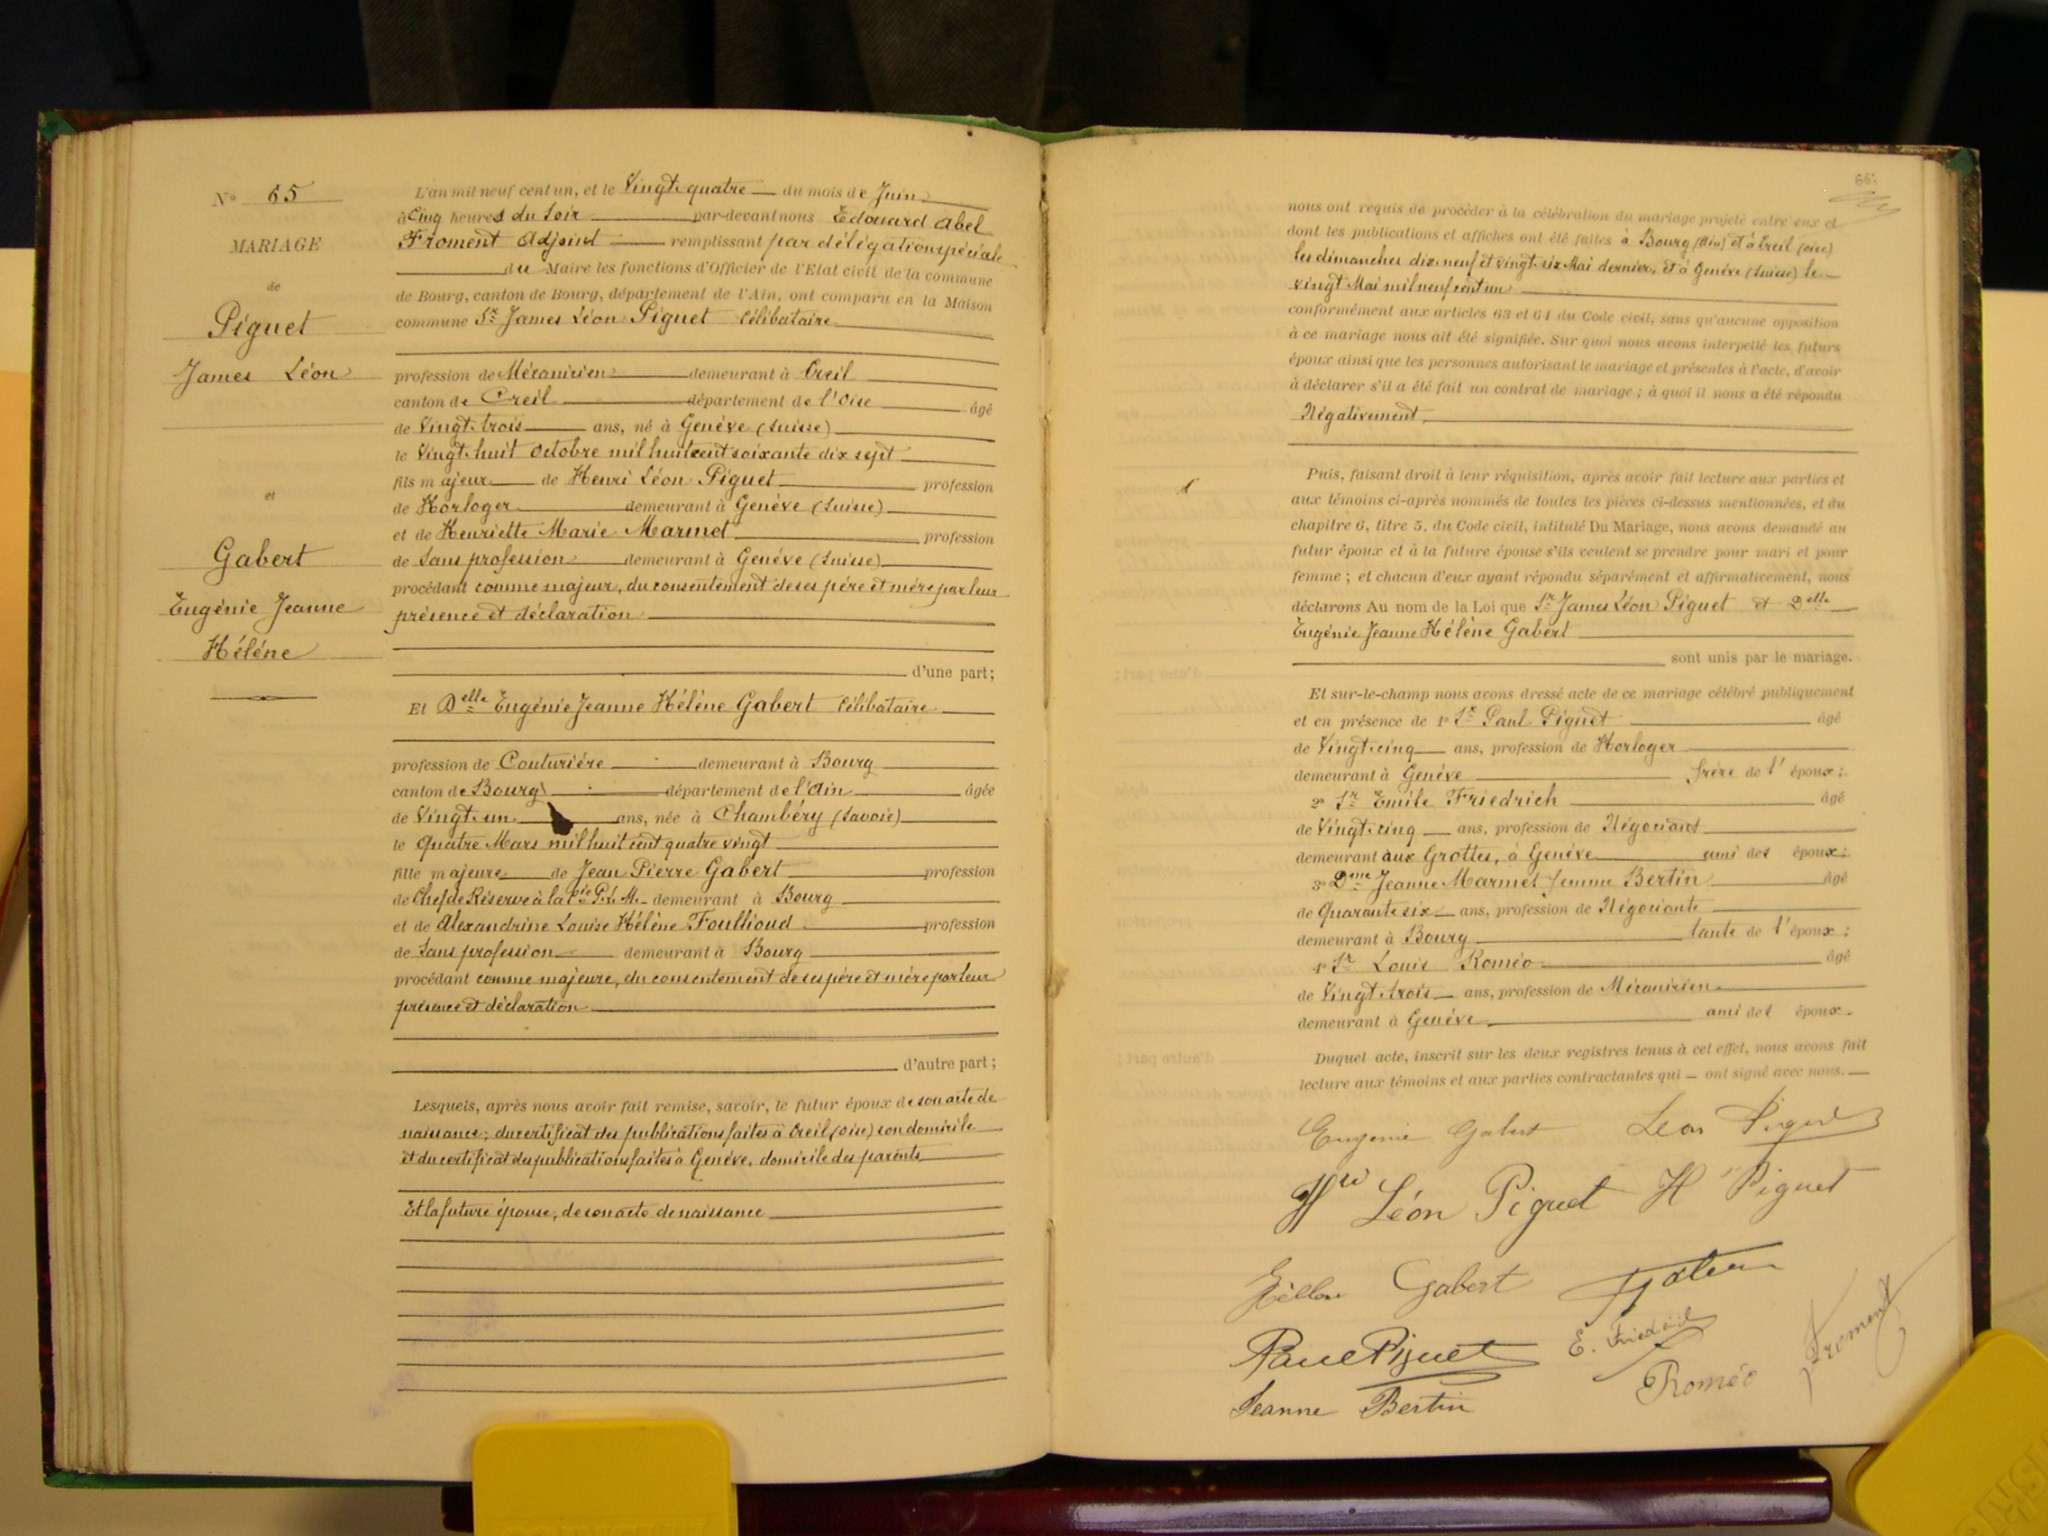 Nº 65
MARIAGE
de
Piguet
James Léon
et
Gabert
Eugénie Jeanne
Hélène
L'an mil neuf cent un, et le Vingt-quatre du mois de Juin
à Cinq heures du soir par-devant nous Edouard Abel
Froment Adjoint remplissant par délégation spéciale
du Maire les fonctions d'Officier de l'Etat civil de la commune
de Bourg, canton de Bourg, département de l'Ain, ont comparu en la Maison
commune Sr James Léon Piguet Célibataire
profession de Mécanicien demeurant à Creil
canton de Creil département de l'Oise âgé
de Vingt-trois ans, né à Genève (Suisse)
le Vingt-huit Octobre mil huit cent soixante dix sept
fils majeur de Henri Léon Piguet profession
de Horloger demeurant à Genève (Suisse)
et de Henriette Marie Marmet profession
de Sans profession demeurant à Genève (Suisse)
procédant comme majeur, du consentement de ses père et mère par leur
présence et déclaration
d'une part;
Et Delle Eugénie Jeanne Hélène Gabert Célibataire
profession de Couturière demeurant à Bourg
canton de Bourg département de l'Ain âgée
de Vingt-un ans, née à Chambéry (Savoie)
le Quatre Mars mil huit cent quatre vingt
fille majeure de Jean Pierre Gabert profession
de Chef de Réserve à la Cie P.L.M. demeurant à Bourg
et de Alexandrine Louise Hélène Foullioud profession
de Sans profession demeurant à Bourg
procédant comme majeure, du consentement de ses père et mère par leur
présence et déclaration
d'autre part;
Lesquels, après nous avoir fait remise, savoir, le futur époux de son acte de
naissance; du certificat des publications faites à Creil (Oise) son domicile
et du certificat des publications faites à Genève, domicile des parents
Et la future épouse, de son acte de naissance
66
nous ont requis de procéder à la célébration du mariage projeté entre eux et
dont les publications et affiches ont été faites à Bourg (Ain) et à Creil (Oise)
les dimanches dix-neuf et vingt-six Mai dernier, et à Genève (Suisse) le
vingt Mai mil neuf cent un
conformément aux articles 63 et 64 du Code civil, sans qu'aucune opposition
à ce mariage nous ait été signifiée. Sur quoi nous avons interpellé les futurs
époux ainsi que les personnes autorisant le mariage et présentes à l'acte, d'avoir
à déclarer s'il a été fait un contrat de mariage; à quoi il nous a été répondu
Négativement
Puis, faisant droit à leur réquisition, après avoir fait lecture aux parties et
aux témoins ci-après nommés de toutes les pièces ci-dessus mentionnées, et du
chapitre 6, titre 5, du Code civil, intitulé Du Mariage, nous avons demandé au
futur époux et à la future épouse s'ils veulent se prendre pour mari et pour
femme; et chacun d'eux ayant répondu séparément et affirmativement, nous
déclarons Au nom de la Loi que Sr James Léon Piguet et Delle
Eugénie Jeanne Hélène Gabert
sont unis par le mariage.
Et sur-le-champ nous avons dressé acte de ce mariage célébré publiquement
et en présence de 1º Sr Paul Piguet âgé
de Vingt-cinq ans, profession de Horloger
demeurant à Genève frère de l'époux;
2º Sr Emile Friedrich âgé
de Vingt-cinq ans, profession de Négociant
demeurant aux Grottes, à Genève ami des époux;
3º Dme Jeanne Marmet femme Bertin âgé
de Quarante six ans, profession de Négociante
demeurant à Bourg tante de l'époux;
4º Sr Louis Roméo âgé
de Vingt-trois ans, profession de Mécanicien
demeurant à Genève ami des époux.
Duquel acte, inscrit sur les deux registres tenus à cet effet, nous avons fait
lecture aux témoins et aux parties contractantes qui ont signé avec nous.
Eugénie Gabert Léon Piguet
Hri Léon Piguet H Piguet
Gabert
Paul Piguet E. Friedrich
Roméo Froment
Jeanne Bertin